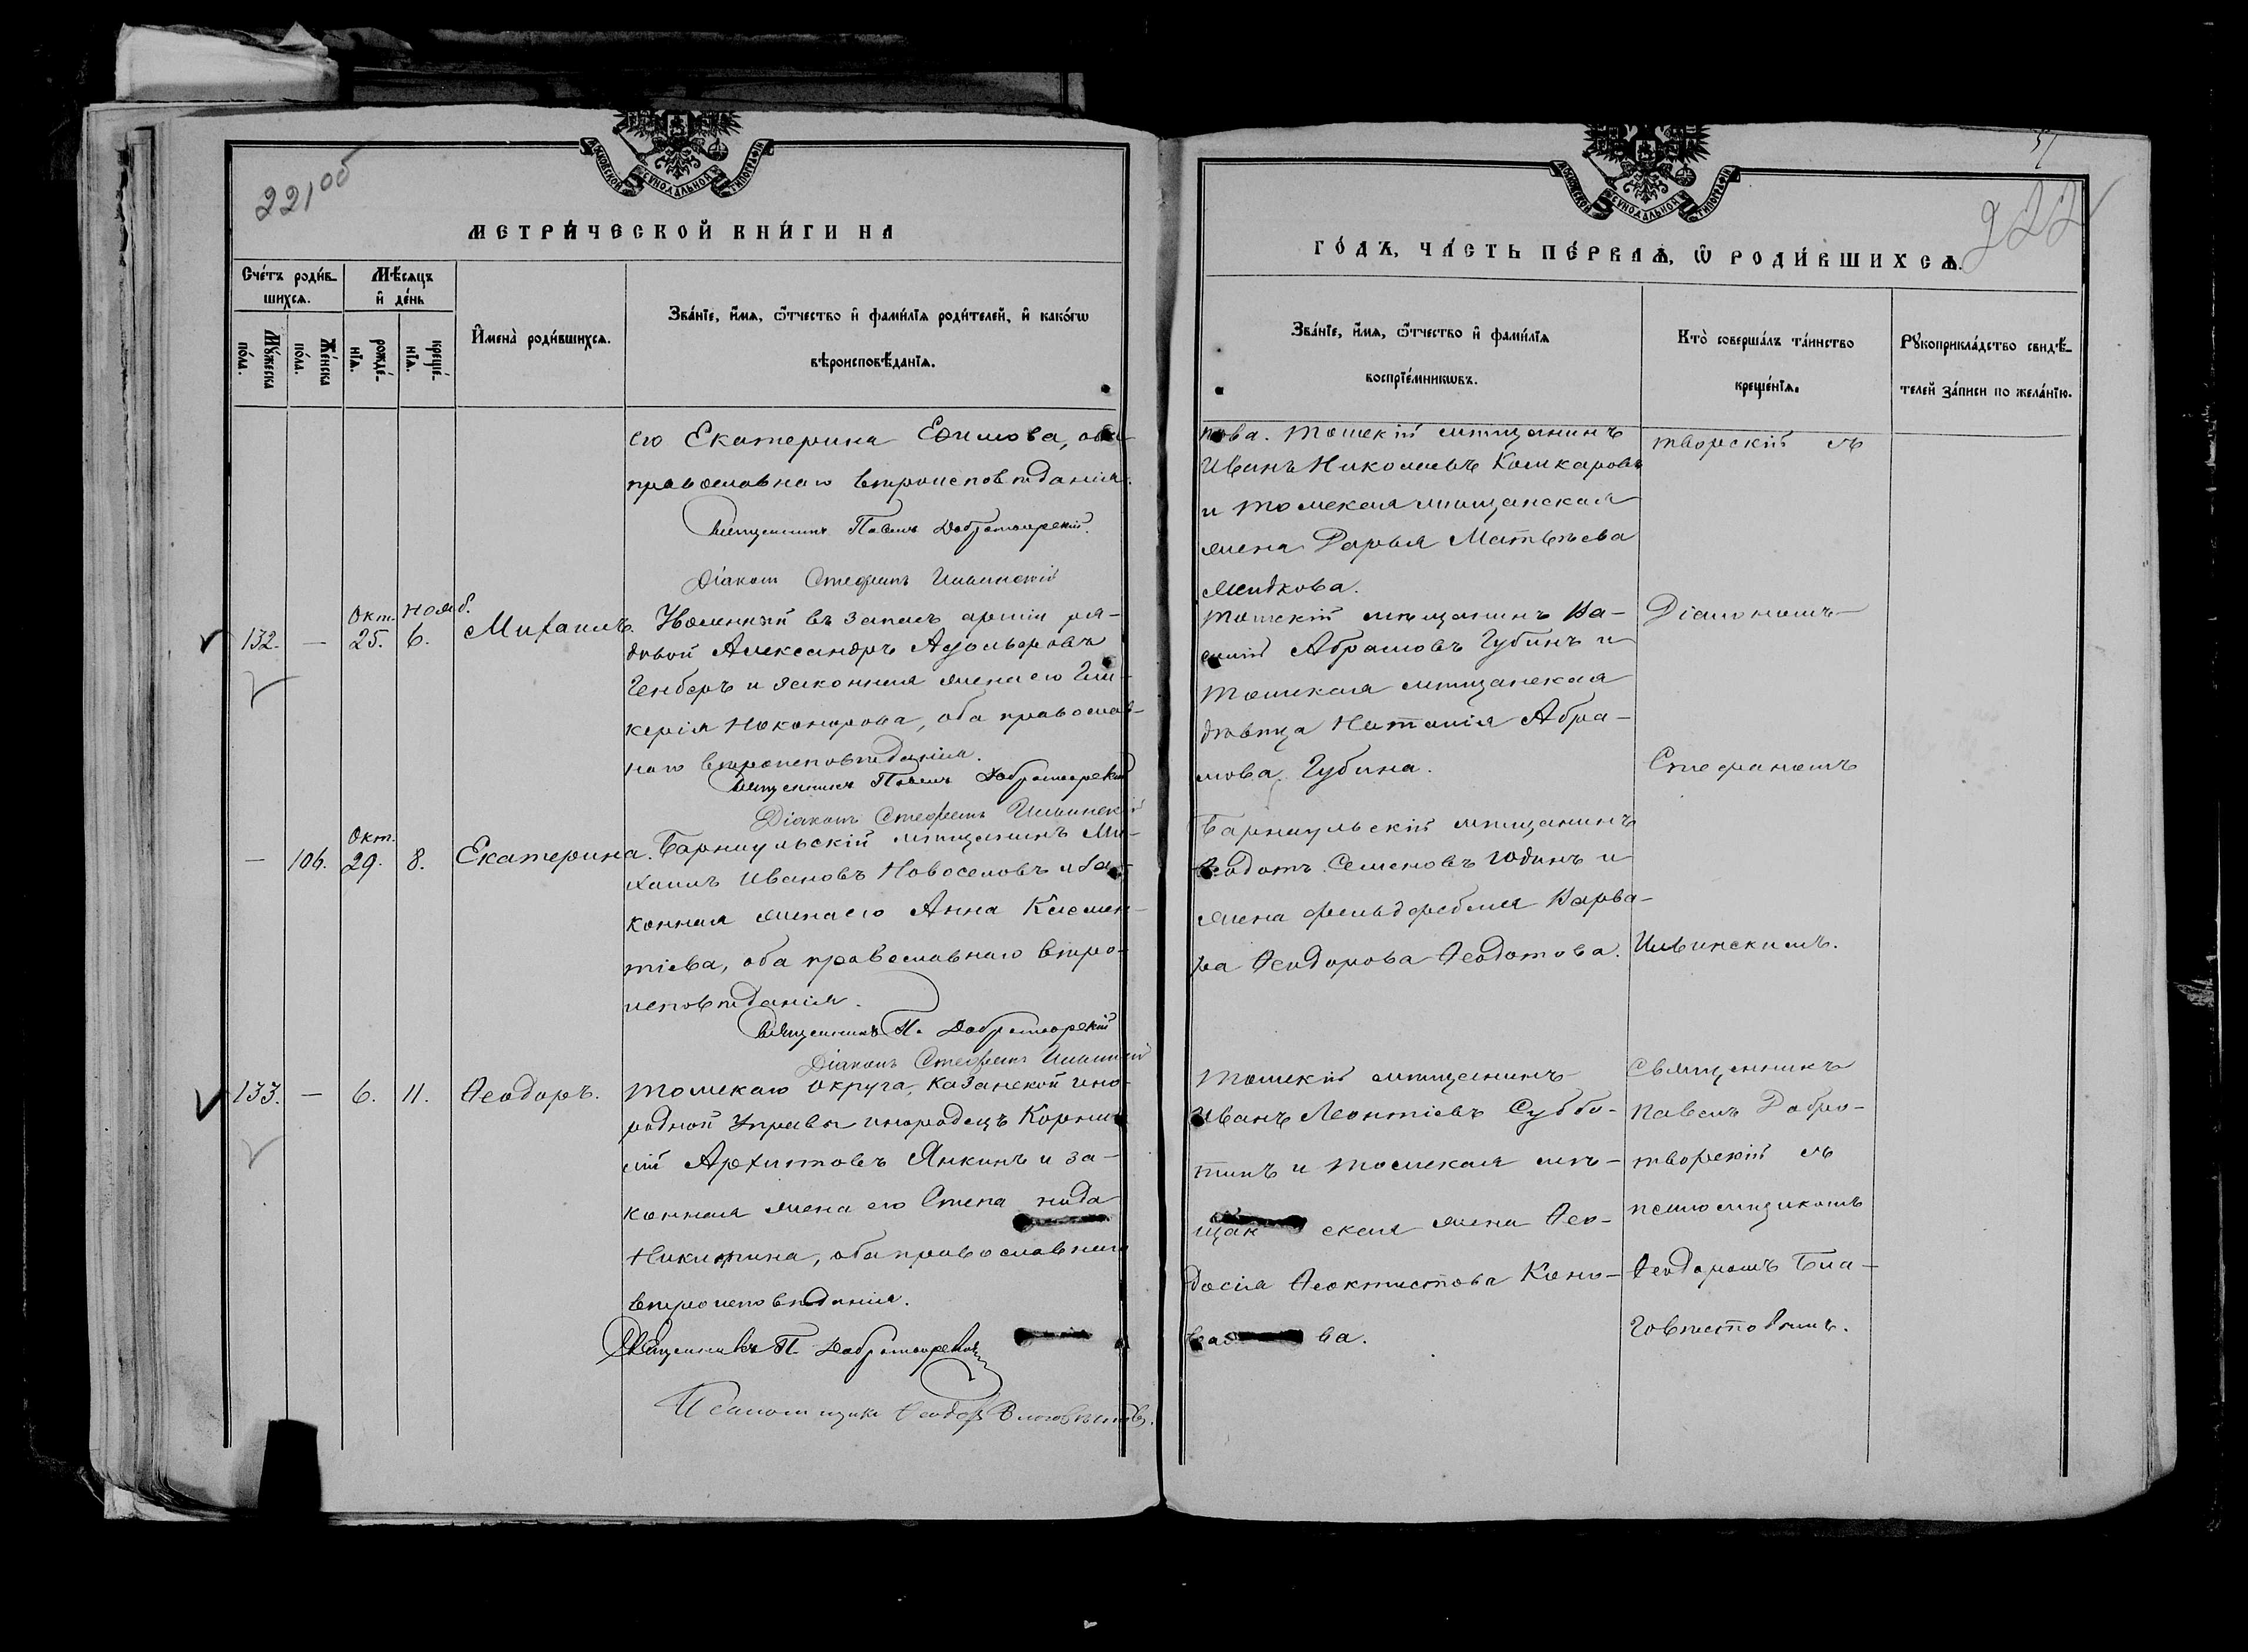 221об
МОСКОВСКОЙ СѴНОДАЛЬНОЙ ТИПОГРАФІИ
МЕТРИ́ЧЕСКОЙ КНИ́ГИ НА
Сче́тъ роди́в-
шихсѧ.
Мѣ́сѧцъ
и҆ де́нь
Мꙋ́жеска
по́ла.
Же́нска
по́ла.
рожде́-
нїѧ.
креще́-
нїѧ.
И҆мена̀ роди́вшихсѧ.
Зва́нїе, и҆́мѧ, ѻ҆́тчество и҆ фами́лїѧ роди́телей, и҆ како́гѡ
вѣроисповѣ́данїѧ.
его Екатерина Ефимова, оба
православнаго вѣроисповѣданія.
Священникъ Павелъ Добротворскій.
Діаконъ Стефанъ Ильинскій
132.
—
Окт.
25.
Нояб.
6.
Михаилъ.
Уволенный въ запасъ арміи ря-
довой Александръ Адольфовъ
Генберъ и законная жена его Гли-
керія Никонорова, оба православ-
наго вѣроисповѣданія.
Священникъ Павелъ Добротворскій
Діаконъ Стефанъ Ильинскій
—
106.
Окт.
29.
8.
Екатерина.
Барнаульскій мѣщанинъ Ми-
хаилъ Ивановъ Новоселовъ и за-
конная жена его Анна Клемен-
тіева, оба православнаго вѣро-
исповѣданія.
Священникъ П. Добротворскій
Діаконъ Стефанъ Ильинскій
133.
—
6.
11.
Ѳеодоръ.
Томскаго округа, Казанской ино-
родной Управы инородецъ Корни-
лій Архиповъ Янкинъ и за-
конная жена его Степанида
Никитина, оба православнаго
вѣроисповѣданія.
Священникъ П. Добротворскій
Псаломщикъ Ѳеодоръ Благовѣстовъ.
222
МОСКОВСКОЙ СѴНОДАЛЬНОЙ ТИПОГРАФІИ
ГО́ДЪ, ЧА́СТЬ ПЕ́РВАѦ, Ѡ҆ РОДИ́ВШИХСѦ.
Зва́нїе, и҆́мѧ, ѻ҆́тчество и҆ фами́лїѧ
воспрїе́мникѡвъ.
Кто̀ соверша́лъ та́инство
креще́нїѧ.
Рꙋкоприкла́дство свидѣ́-
телей за́писи по жела́нїю.
пова. Томскій мѣщанинъ
Иванъ Николаевъ Кошкаровъ
и томская мѣщанская
жена Дарья Матвѣева
творскій съ
Томскій мѣщанинъ Ва-
силій Абрамовъ Губинъ и
томская мѣщанская
дѣвица Наталія Абра-
мова Губина.
Діакономъ
Стефаномъ
Барнаульскій мѣщанинъ
Ѳеодотъ Семеновъ Юдинъ и
жена фельдфебеля Варва-
ра Ѳеодорова Ѳеодотова.
Ильинскимъ.
Томскій мѣщанинъ
Иванъ Леонтіевъ Суббо-
тинъ и томская мѣ-
щанская жена Ѳео-
досія Ѳеоктистова Коно-
ва.
Священникъ
Павелъ Добро-
творскій съ
псаломщикомъ
Ѳеодоромъ Бла-
говѣстовымъ.